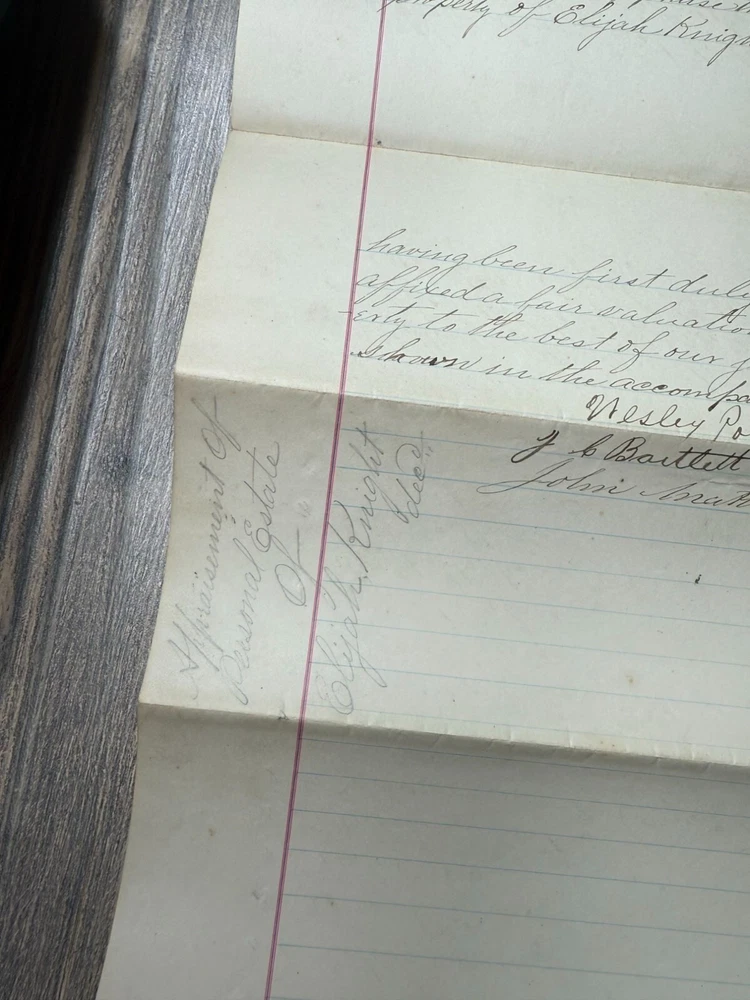 property of Elijah Knigh
having been first duly
affixed a fair valuatio
-erty to the best of our j
shown in the accompa
Wesley Po
J C Bartlett
John
Appraisement Of
Personal Estate
Of
Elijah Knight
dec'd